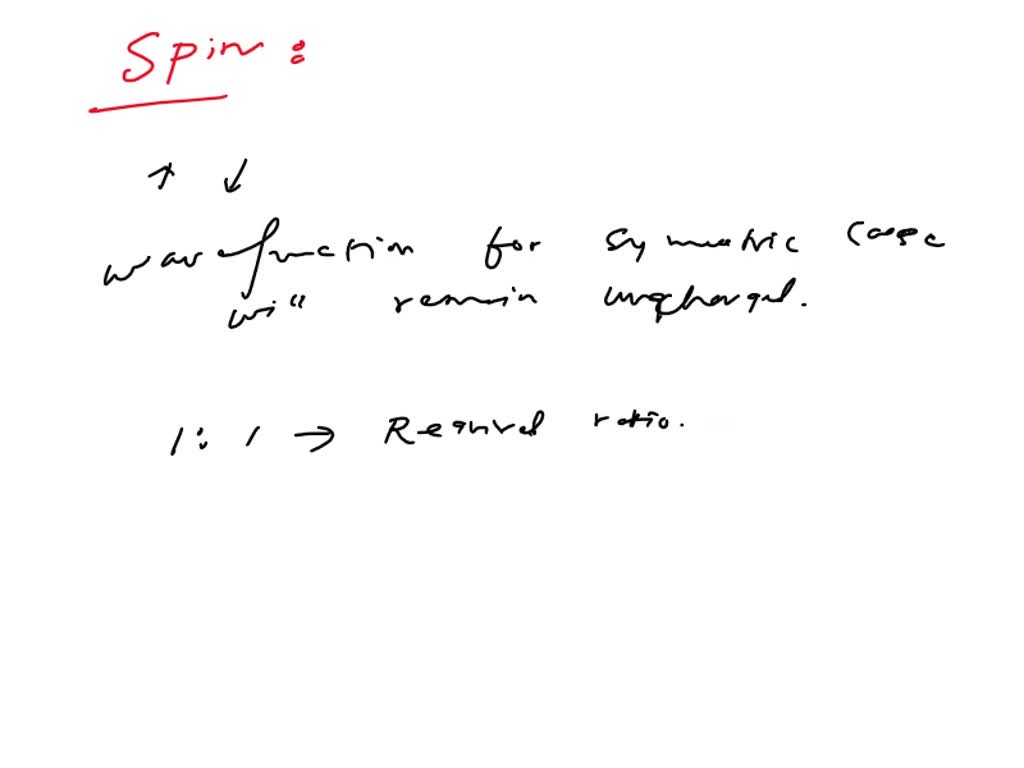 Spin:
↑ ↓
wavefunction for symmetric case
will remain unchanged.
1:1 → Required ratio.